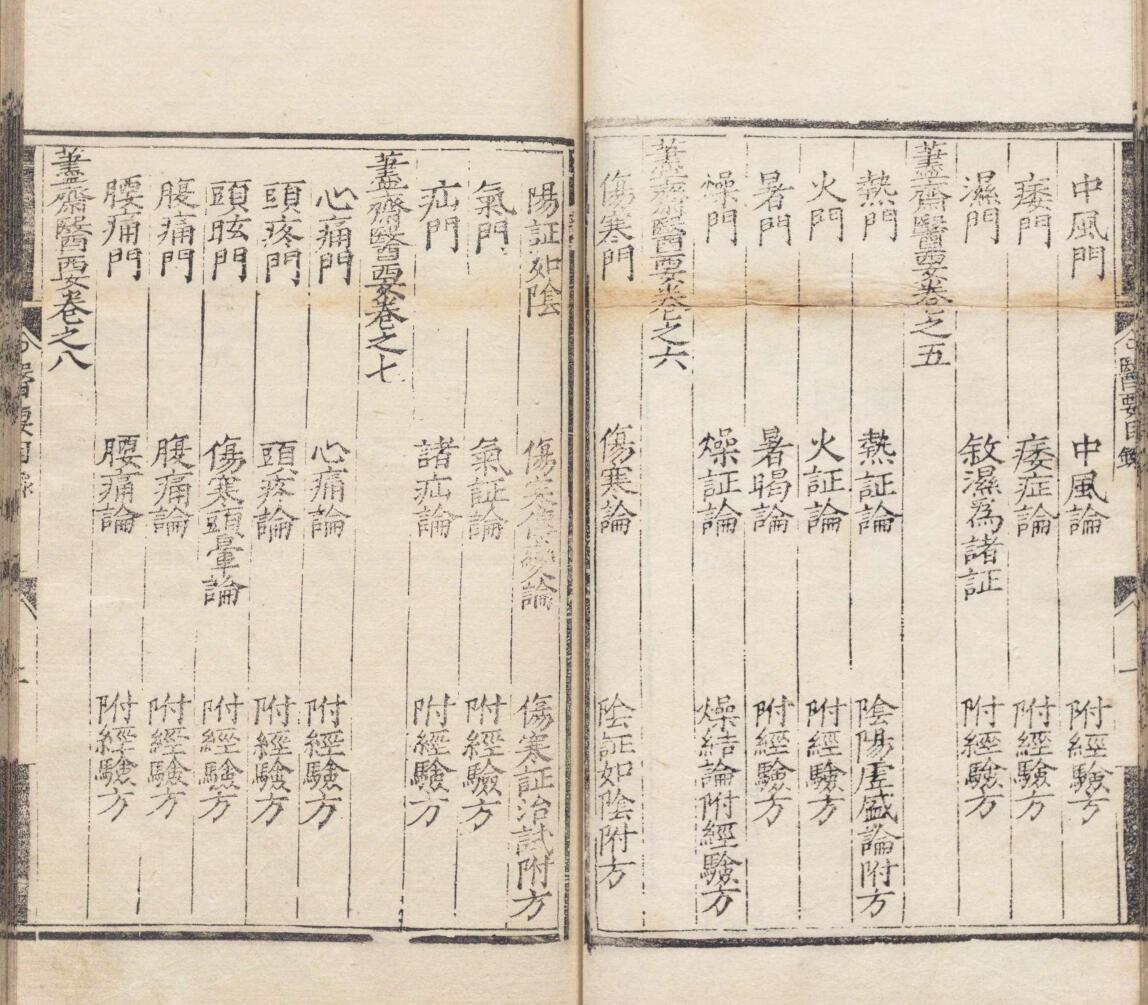 中風門 中風論 附經驗方
痿門 痿症論 附經驗方
濕門 敘濕為諸証 附經驗方
藎齋醫要卷之五
熱門 熱証論 陰陽虛盛論附方
火門 火証論 附經驗方
暑門 暑暍論 附經驗方
燥門 燥証論 燥結論附經驗方
藎齋醫要卷之六
傷寒門 傷寒論 陰証如陰附方
醫要目錄
一
陽証如陰 傷寒傳變論 傷寒証治試附方
氣門 氣証論 附經驗方
疝門 諸疝論 附經驗方
藎齋醫要卷之七
心痛門 心痛論 附經驗方
頭疼門 頭疼論 附經驗方
頭眩門 傷寒頭暈論 附經驗方
腹痛門 腹痛論 附經驗方
腰痛門 腰痛論 附經驗方
藎齋醫要卷之八
醫要目錄